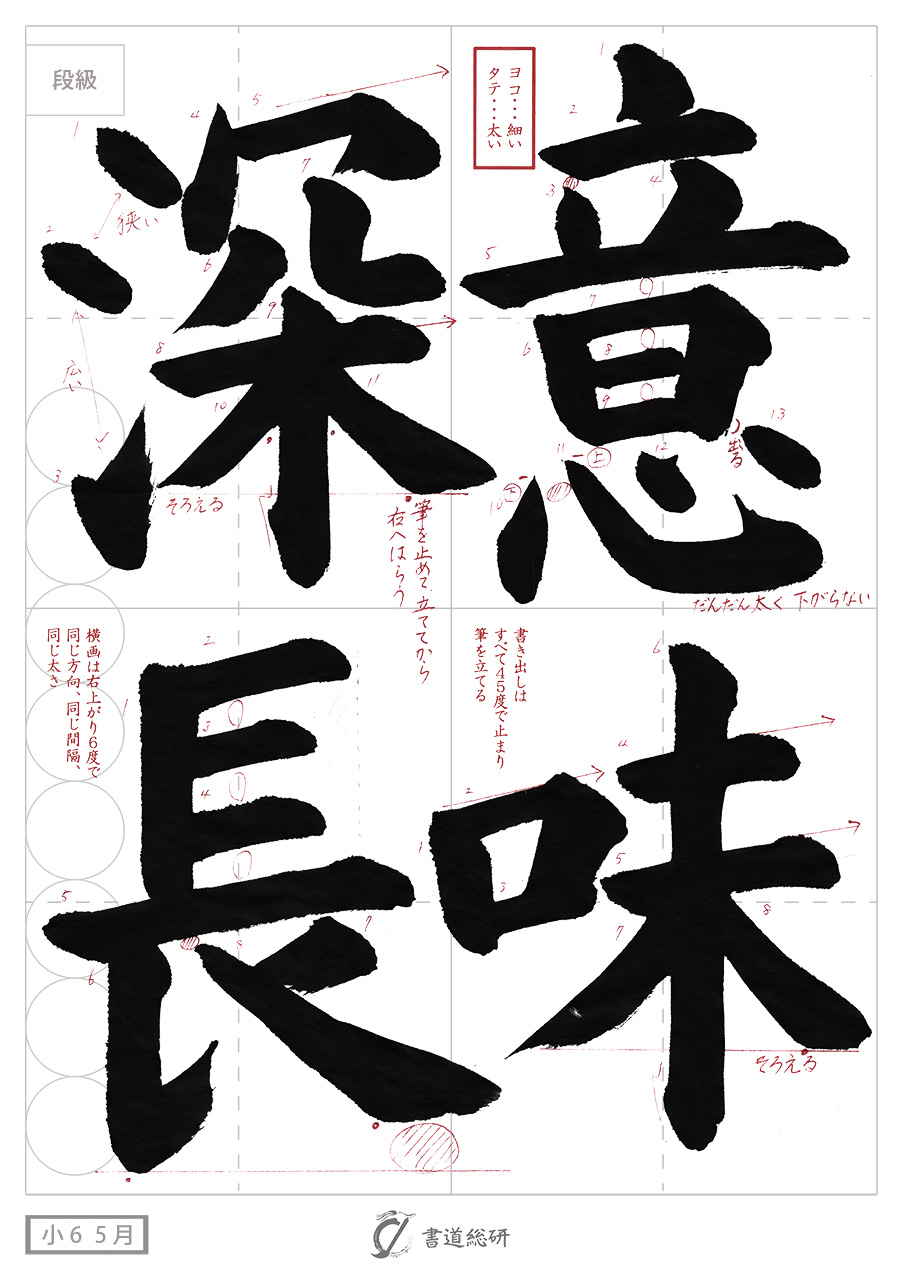 意味
深長
段級
ヨコ・・・細い
タテ・・・太い
狭い
広い
そろえる
筆を止めて、立ててから
右へはらう
上
下
出る
だんだん太く 下がらない
書き出しは
すべて45度で止まり
筆を立てる
そろえる
横画は右上がり6度で
同じ方向、同じ間隔、
同じ太さ
小6 5月
書道総研